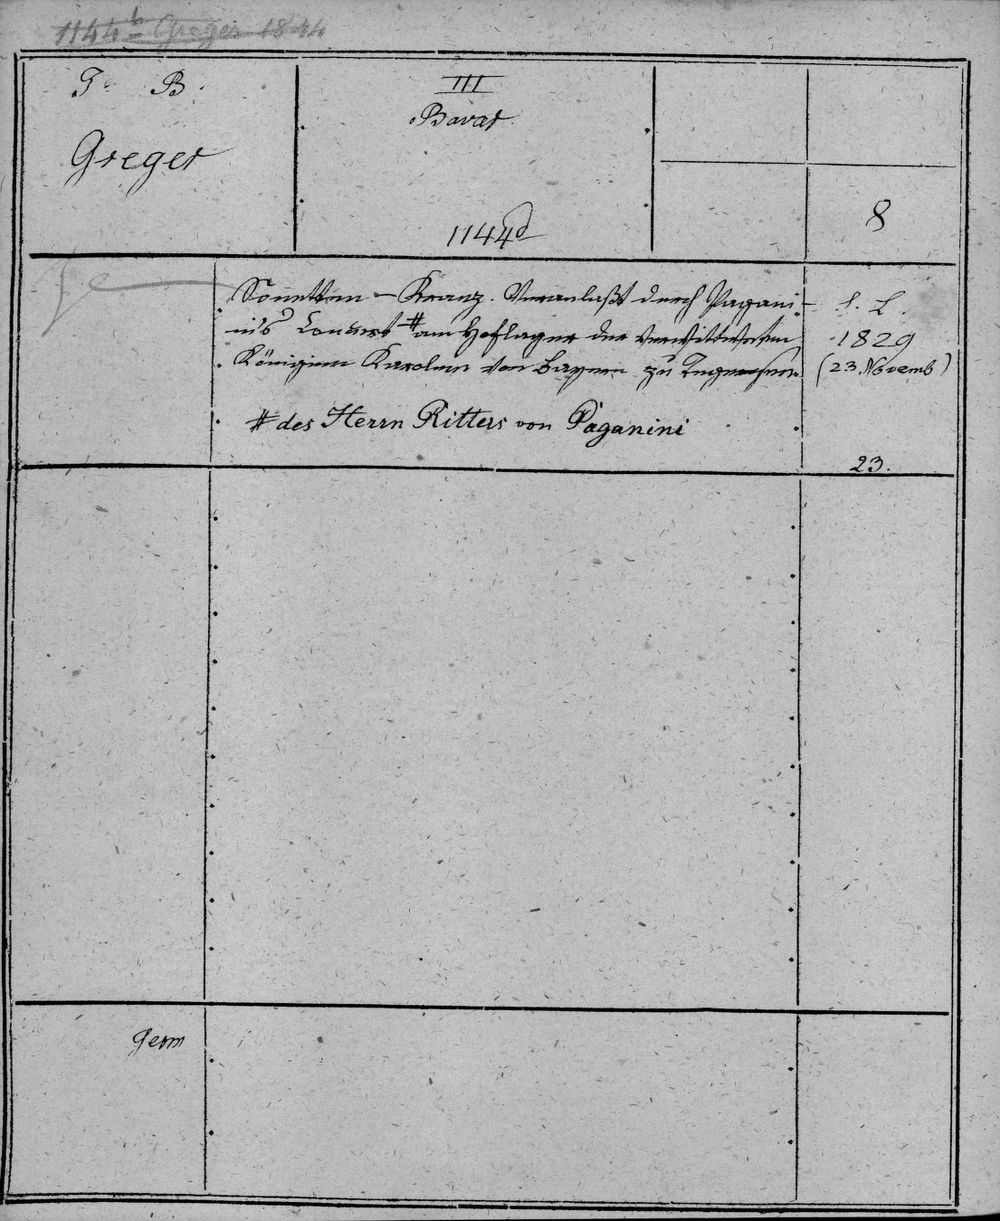 1144b Greger 1844
J. B.
Greger
III
Bavar.
1144d
8
Sonetten-Kranz. Veranlaßt durch Pagani-
ni's Concert # am Hoflager der verwittweten
Königinn Karoline von Bayern zu Tegernsee.
# des Herrn Ritters von Paganini
s. l.
1829
(23. Novemb)
23.
Germ